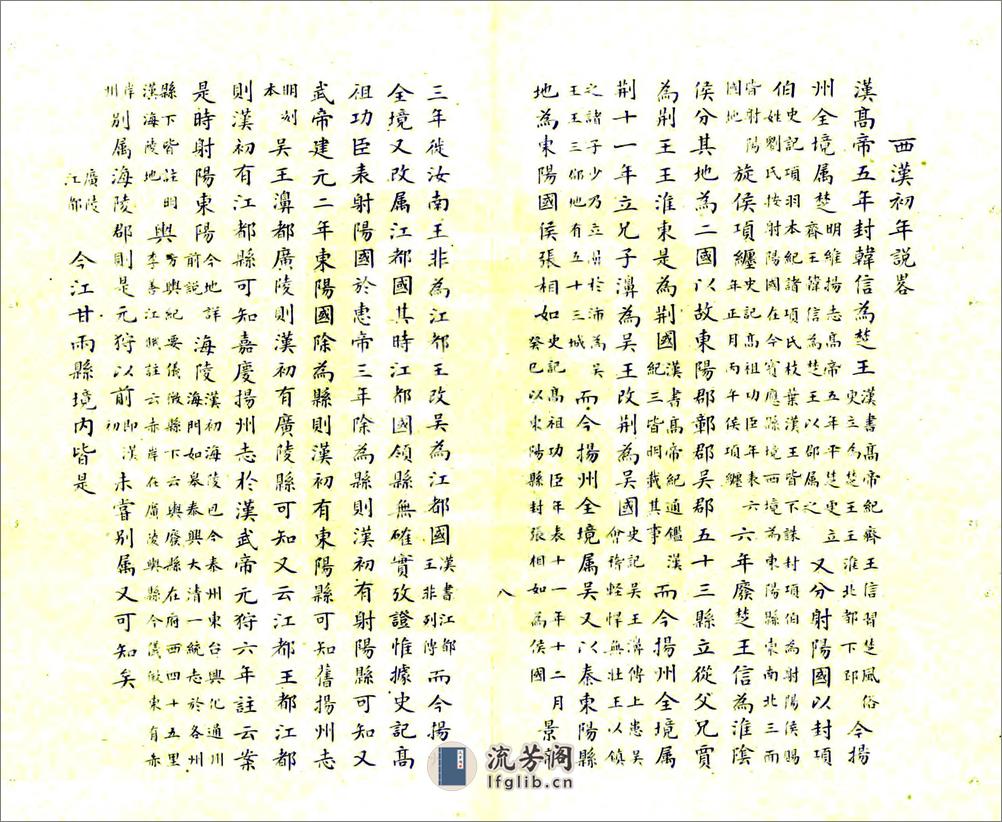 西漢初年說畧
漢髙帝五年封韓信為楚王漢書髙帝紀齊王信習楚風俗更立為楚王王淮北都下邳今揚
州全境属楚明維揚志高帝五年平楚更立齊王韓信為楚王以郡属之又分射陽國以封項
伯史記項羽本紀諸項氏枝葉漢王皆下誅封項伯為射陽侯賜姓劉氏按射陽國在今寶應縣境西境為東陽縣東南北三面
皆射陽國地旋侯項纏史記高祖功臣年表六年正月丙午侯項纏六年廢楚王信為淮陰
侯分其地為二國以故東陽郡鄣郡吳郡五十三縣立從父兄賈
為荆王王淮東是為荆國漢書髙帝紀通鑑漢紀三皆明載其事而今揚州全境属
荆十一年立兄子濞為吳王改荆為吳國史記吳王濞傳上患吳會稽輕悍無壯王以鎮
之諸子少乃立濞於沛為吳王王三郡地有五十三城而今揚州全境属吳又以秦東陽縣
地為東陽國侯張相如史記高祖功臣年表十一年十二月癸巳以東陽縣封張相如為侯國景
八
三年徙汝南王非為江都王改吳為江都國漢書江都王非列傳而今揚
全境又改属江都國其時江都國領縣無確實攷證惟據史記髙
祖功臣表射陽國於惠帝三年除為縣則漢初有射陽縣可知又
武帝建元二年東陽國除為縣則漢初有東陽縣可知舊揚州志
明刻本吳王濞都廣陵則漢初有廣陵縣可知又云江都王都江都
則漢初有江都縣可知嘉慶揚州志於漢武帝元狩六年註云案
是時射陽東陽今地詳前說海陵漢初海陵邑今泰州東台興化通川海門如皋泰興大清一統志於各州
縣下皆註明漢海陵地輿方輿紀要儀徵縣下云輿廢縣在府西四十五里李善江賦註云赤岸在廣陵輿縣今儀徵東有赤
岸州別属海陵郡則是元狩以前即漢初未嘗別属又可知矣
廣陵江都今江甘兩縣境內皆是
流芳阁
lfglib.cn